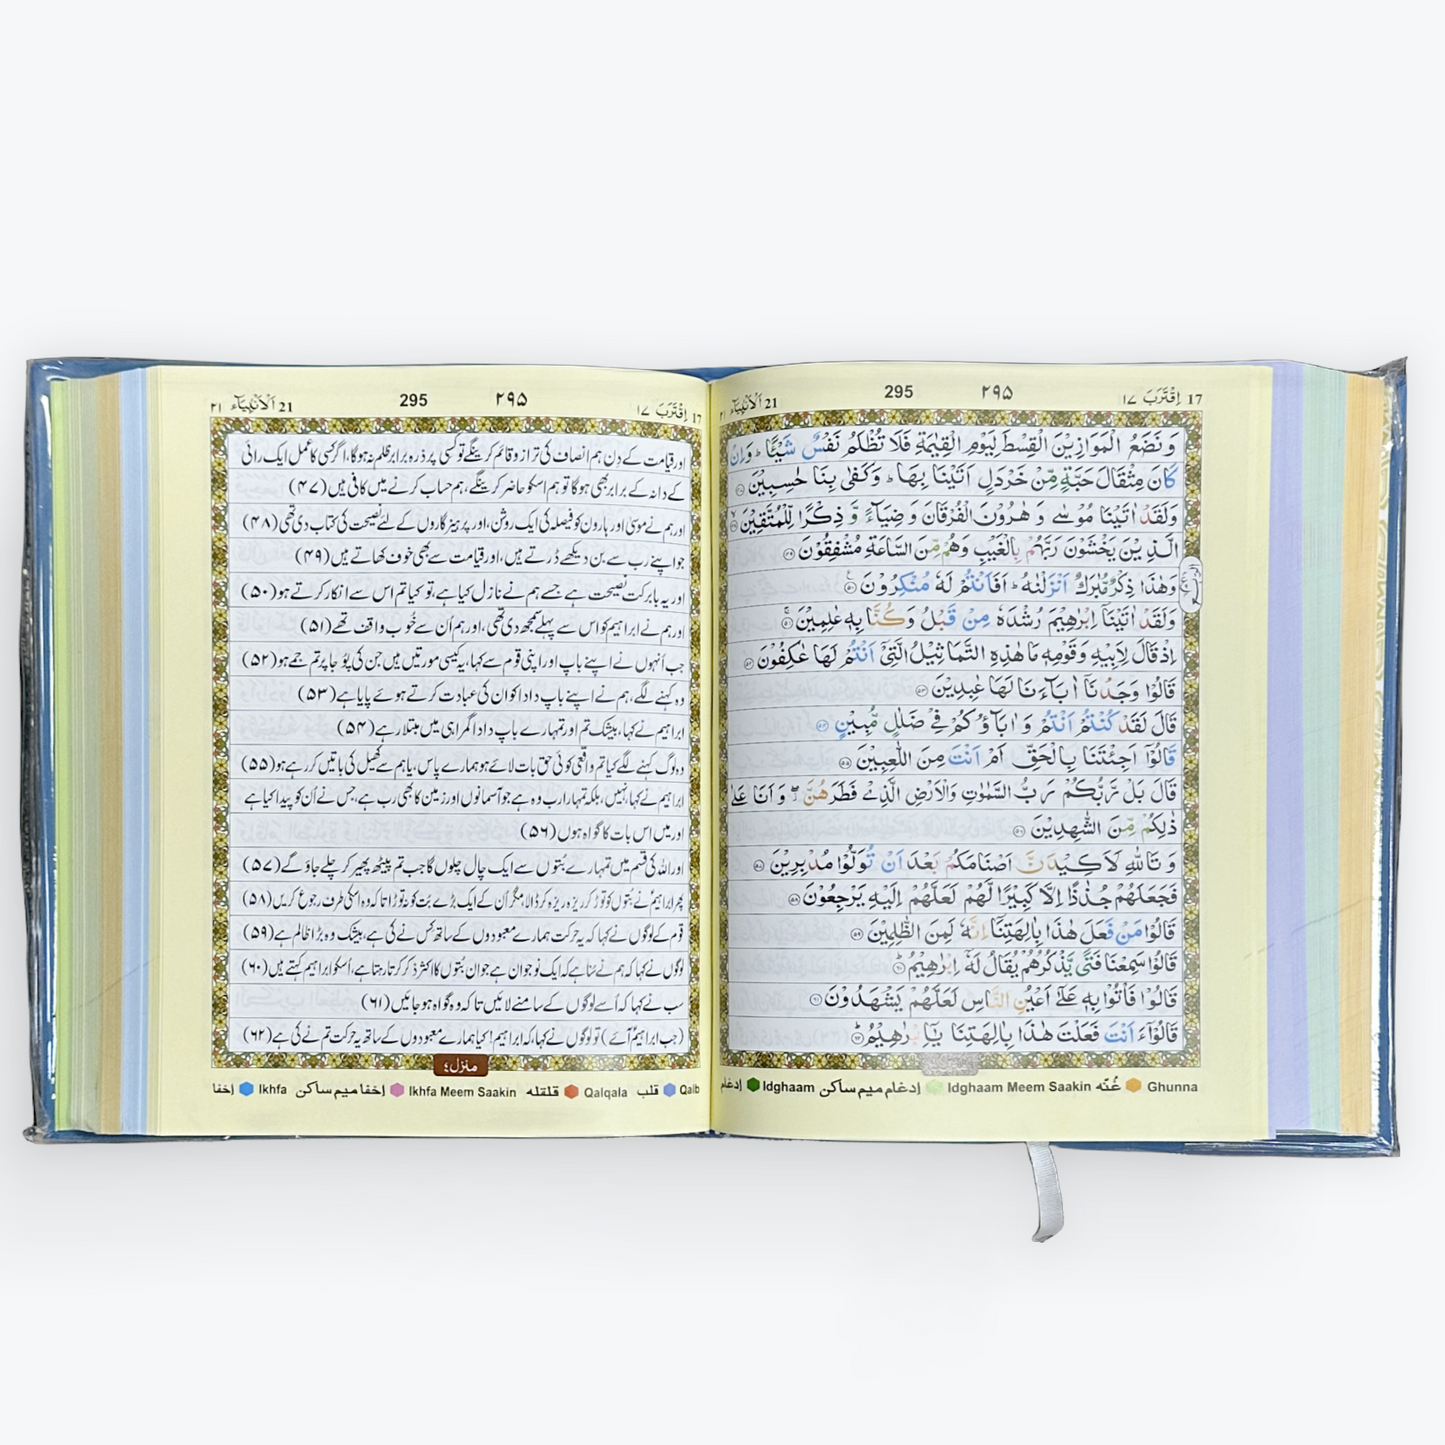 17 اِقْتَرَبَ ١٧ ٢٩۵ 295 21 اَلْاَنْۢبِیَآء ٢١
وَ نَضَعُ الْمَوَازِیْنَ الْقِسْطَ لِیَوْمِ الْقِیٰمَةِ فَلَا تُظْلَمُ نَفْسٌ شَیْـًٔا ؕ وَ اِنْ
كَانَ مِثْقَالَ حَبَّةٍ مِّنْ خَرْدَلٍ اَتَیْنَا بِهَا ؕ وَ كَفٰی بِنَا حٰسِبِیْنَ ۴۷
وَ لَقَدْ اٰتَیْنَا مُوْسٰی وَ هٰرُوْنَ الْفُرْقَانَ وَ ضِیَآءً وَّ ذِكْرًا لِّلْمُتَّقِیْنَ ۴۸
الَّذِیْنَ یَخْشَوْنَ رَبَّهُمْ بِالْغَیْبِ وَ هُمْ مِّنَ السَّاعَةِ مُشْفِقُوْنَ ۴۹
وَ هٰذَا ذِكْرٌ مُّبٰرَكٌ اَنْزَلْنٰهُ ؕ اَفَاَنْتُمْ لَهٗ مُنْكِرُوْنَ ۵۰
وَ لَقَدْ اٰتَیْنَاۤ اِبْرٰهِیْمَ رُشْدَهٗ مِنْ قَبْلُ وَ كُنَّا بِهٖ عٰلِمِیْنَ ۵۱
اِذْ قَالَ لِاَبِیْهِ وَ قَوْمِهٖ مَا هٰذِهِ التَّمَاثِیْلُ الَّتِیْۤ اَنْتُمْ لَهَا عٰكِفُوْنَ ۵۲
قَالُوْا وَجَدْنَاۤ اٰبَآءَنَا لَهَا عٰبِدِیْنَ ۵۳
قَالَ لَقَدْ كُنْتُمْ اَنْتُمْ وَ اٰبَآؤُكُمْ فِیْ ضَلٰلٍ مُّبِیْنٍ ۵۴
قَالُوْۤا اَجِئْتَنَا بِالْحَقِّ اَمْ اَنْتَ مِنَ اللّٰعِبِیْنَ ۵۵
قَالَ بَلْ رَّبُّكُمْ رَبُّ السَّمٰوٰتِ وَ الْاَرْضِ الَّذِیْ فَطَرَهُنَّ ۖ وَ اَنَا عَلٰی
ذٰلِكُمْ مِّنَ الشّٰهِدِیْنَ ۵۶
وَ تَاللّٰهِ لَاَكِیْدَنَّ اَصْنَامَكُمْ بَعْدَ اَنْ تُوَلُّوْا مُدْبِرِیْنَ ۵۷
فَجَعَلَهُمْ جُذٰذًا اِلَّا كَبِیْرًا لَّهُمْ لَعَلَّهُمْ اِلَیْهِ یَرْجِعُوْنَ ۵۸
قَالُوْا مَنْ فَعَلَ هٰذَا بِاٰلِهَتِنَاۤ اِنَّهٗ لَمِنَ الظّٰلِمِیْنَ ۵۹
قَالُوْا سَمِعْنَا فَتًی یَّذْكُرُهُمْ یُقَالُ لَهٗۤ اِبْرٰهِیْمُ ۶۰
قَالُوْا فَاْتُوْا بِهٖ عَلٰۤی اَعْیُنِ النَّاسِ لَعَلَّهُمْ یَشْهَدُوْنَ ۶۱
قَالُوْۤا ءَاَنْتَ فَعَلْتَ هٰذَا بِاٰلِهَتِنَا یٰۤاِبْرٰهِیْمُ ۶۲
Ghunna غُنّه Idghaam Meem Saakin إدغام ميم ساكن Idghaam إدغام
17 اِقْتَرَبَ ١٧ ٢٩۵ 295 21 اَلْاَنْۢبِیَآء ٢١
اور قیامت کے دِن ہم انصاف کی ترازو قائم کرینگے تو کسی پر ذرہ برابر ظلم نہ ہوگا، اگر کسی کا عمل ایک رائی
کے دانہ کے برابر بھی ہوگا تو ہم اسکو حاضر کرینگے، ہم حساب کرنے میں کافی ہیں (۴۷)
اور ہم نے موسیٰ اور ہارون کو فیصلہ کی ایک روشن، اور پرہیزگاروں کے لئے نصیحت کی کتاب دی تھی (۴۸)
جو اپنے رب سے بن دیکھے ڈرتے ہیں، اور قیامت سے بھی خوف کھاتے ہیں (۴۹)
اور یہ بابرکت نصیحت ہے جسے ہم نے نازل کیا ہے، تو کیا تم اس سے انکار کرتے ہو (۵۰)
اور ہم نے ابراہیم کو اس سے پہلے سمجھ دی تھی، اور ہم اُن سے خُوب واقف تھے (۵۱)
جب اُنہوں نے اپنے باپ اور اپنی قوم سے کہا، یہ کیسی مورتیں ہیں جن کی پُوجا پر تم جمے ہو (۵۲)
وہ کہنے لگے، ہم نے اپنے باپ دادا کو ان کی عبادت کرتے ہوئے پایا ہے (۵۳)
ابراہیم نے کہا، بیشک تم اور تمہارے باپ دادا گمراہی میں مبتلا رہے (۵۴)
وہ لوگ کہنے لگے کیا تم واقعی کوئی حق بات لائے ہو ہمارے پاس، یا ہم سے کھیل کی باتیں کر رہے ہو (۵۵)
ابراہیم نے کہا، نہیں، بلکہ تمہارا رب وہ ہے جو آسمانوں اور زمین کا بھی رب ہے، جس نے اُن کو پیدا کیا ہے
اور میں اس بات کا گواہ ہوں (۵۶)
اور اللہ کی قسم میں تمہارے بُتوں سے ایک چال چلوں گا جب تم پیٹھ پھیر کر چلے جاؤ گے (۵۷)
پھر ابراہیمؑ نے بُتوں کو توڑ کر ریزہ ریزہ کر ڈالا، مگر اُن کے ایک بڑے بت کو نہ توڑا تاکہ وہ اسکی طرف رجوع کریں (۵۸)
قوم کے لوگوں نے کہا کہ یہ حرکت ہمارے معبودوں کے ساتھ کس نے کی ہے، بیشک وہ بڑا ظالم ہے (۵۹)
لوگوں نے کہا کہ ہم نے سُنا ہے کہ ایک نوجوان ہے جو ان بُتوں کا اکثر ذکر کرتا رہتا ہے، اُسکو ابراہیم کہتے ہیں (۶۰)
سب نے کہا کہ اُسے لوگوں کے سامنے لائیں تاکہ وہ گواہ ہو جائیں (۶۱)
(جب ابراہیمؑ آئے) تو لوگوں نے کہا، کہ ابراہیم! کیا ہمارے معبودوں کے ساتھ یہ حرکت تم نے کی ہے (۶۲)
منزل ۴
Qalb قلب Qalqala قلقله Ikhfa Meem Saakin إخفا ميم ساكن Ikhfa إخفا